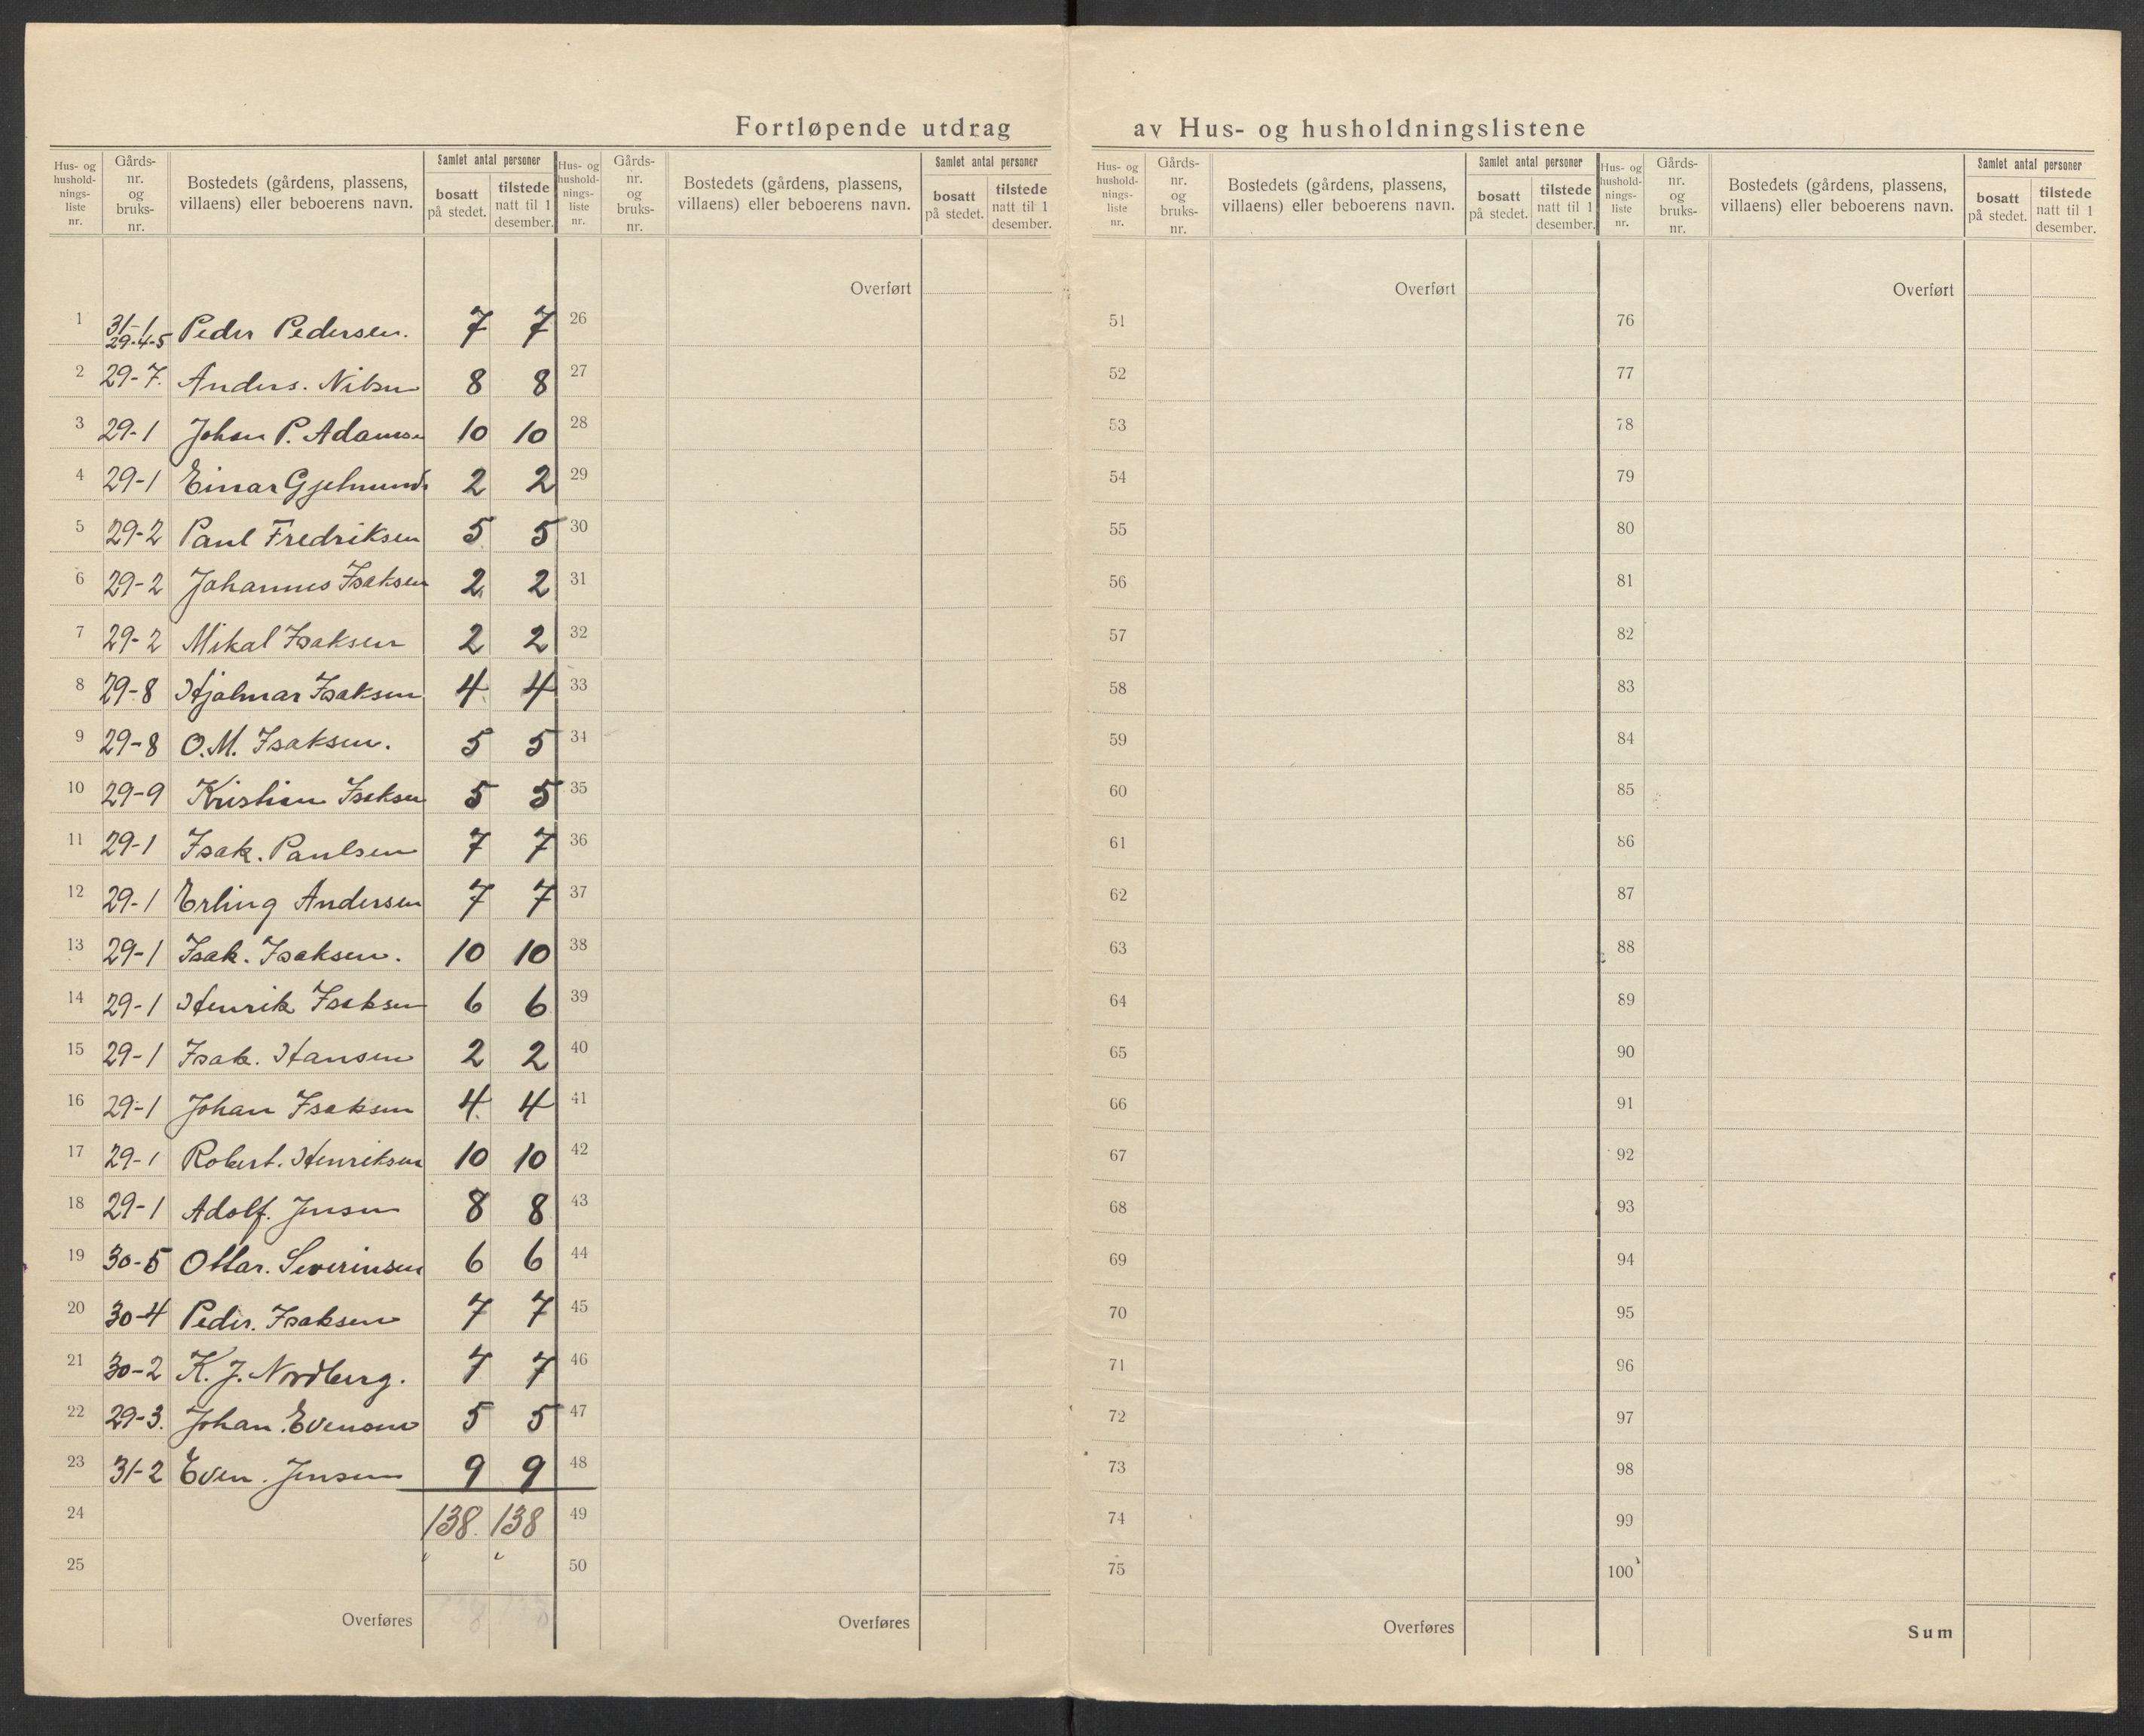 Fortløpende utdrag av Hus- og husholdningslistene
Hus- og hushold-nings-liste nr. Gårds-nr. og bruks-nr. Bostedets (gårdens, plassens, villaens) eller beboerens navn. Samlet antal personer bosatt på stedet. tilstede natt til 1 desember.
Hus- og hushold-nings-liste nr. Gårds-nr. og bruks-nr. Bostedets (gårdens, plassens, villaens) eller beboerens navn. Samlet antal personer bosatt på stedet. tilstede natt til 1 desember.
Hus- og hushold-nings-liste nr. Gårds-nr. og bruks-nr. Bostedets (gårdens, plassens, villaens) eller beboerens navn. Samlet antal personer bosatt på stedet. tilstede natt til 1 desember.
Hus- og hushold-nings-liste nr. Gårds-nr. og bruks-nr. Bostedets (gårdens, plassens, villaens) eller beboerens navn. Samlet antal personer bosatt på stedet. tilstede natt til 1 desember.
Overført Overført Overført
1 31-1 29-4-5 Peder Pedersen. 7 7 26 51 76
2 29-7. Anders. Nilsen 8 8 27 52 77
3 29-1 Johan P. Adamsen 10 10 28 53 78
4 29-1 Einar Gjelmunds 2 2 29 54 79
5 29-2 Paul Fredriksen 5 5 30 55 80
6 29-2 Johannes Isaksen 2 2 31 56 81
7 29-2 Mikal Isaksen 2 2 32 57 82
8 29-8 Hjalmar Isaksen 4 4 33 58 83
9 29-8 O.M. Isaksen. 5 5 34 59 84
10 29-9 Kristian Isaksen 5 5 35 60 85
11 29-1 Isak. Paulsen 7 7 36 61 86
12 29-1 Erling Andersen 7 7 37 62 87
13 29-1 Isak. Isaksen. 10 10 38 63 88
14 29-1 Henrik Isaksen 6 6 39 64 89
15 29-1 Isak. Hansen 2 2 40 65 90
16 29-1 Johan Isaksen 4 4 41 66 91
17 29-1 Robert. Henriksen 10 10 42 67 92
18 29-1 Adolf. Jensen 8 8 43 68 93
19 30-5 Ottar. Severinsen 6 6 44 69 94
20 30-4 Peder. Isaksen 7 7 45 70 95
21 30-2 K. J. Nordberg. 7 7 46 71 96
22 29-3. Johan. Evensen 5 5 47 72 97
23 31-2 Even. Jensen 9 9 48 73 98
24 138 138 49 74 99
25 50 75 100
Overføres 138 138 Overføres Overføres Sum